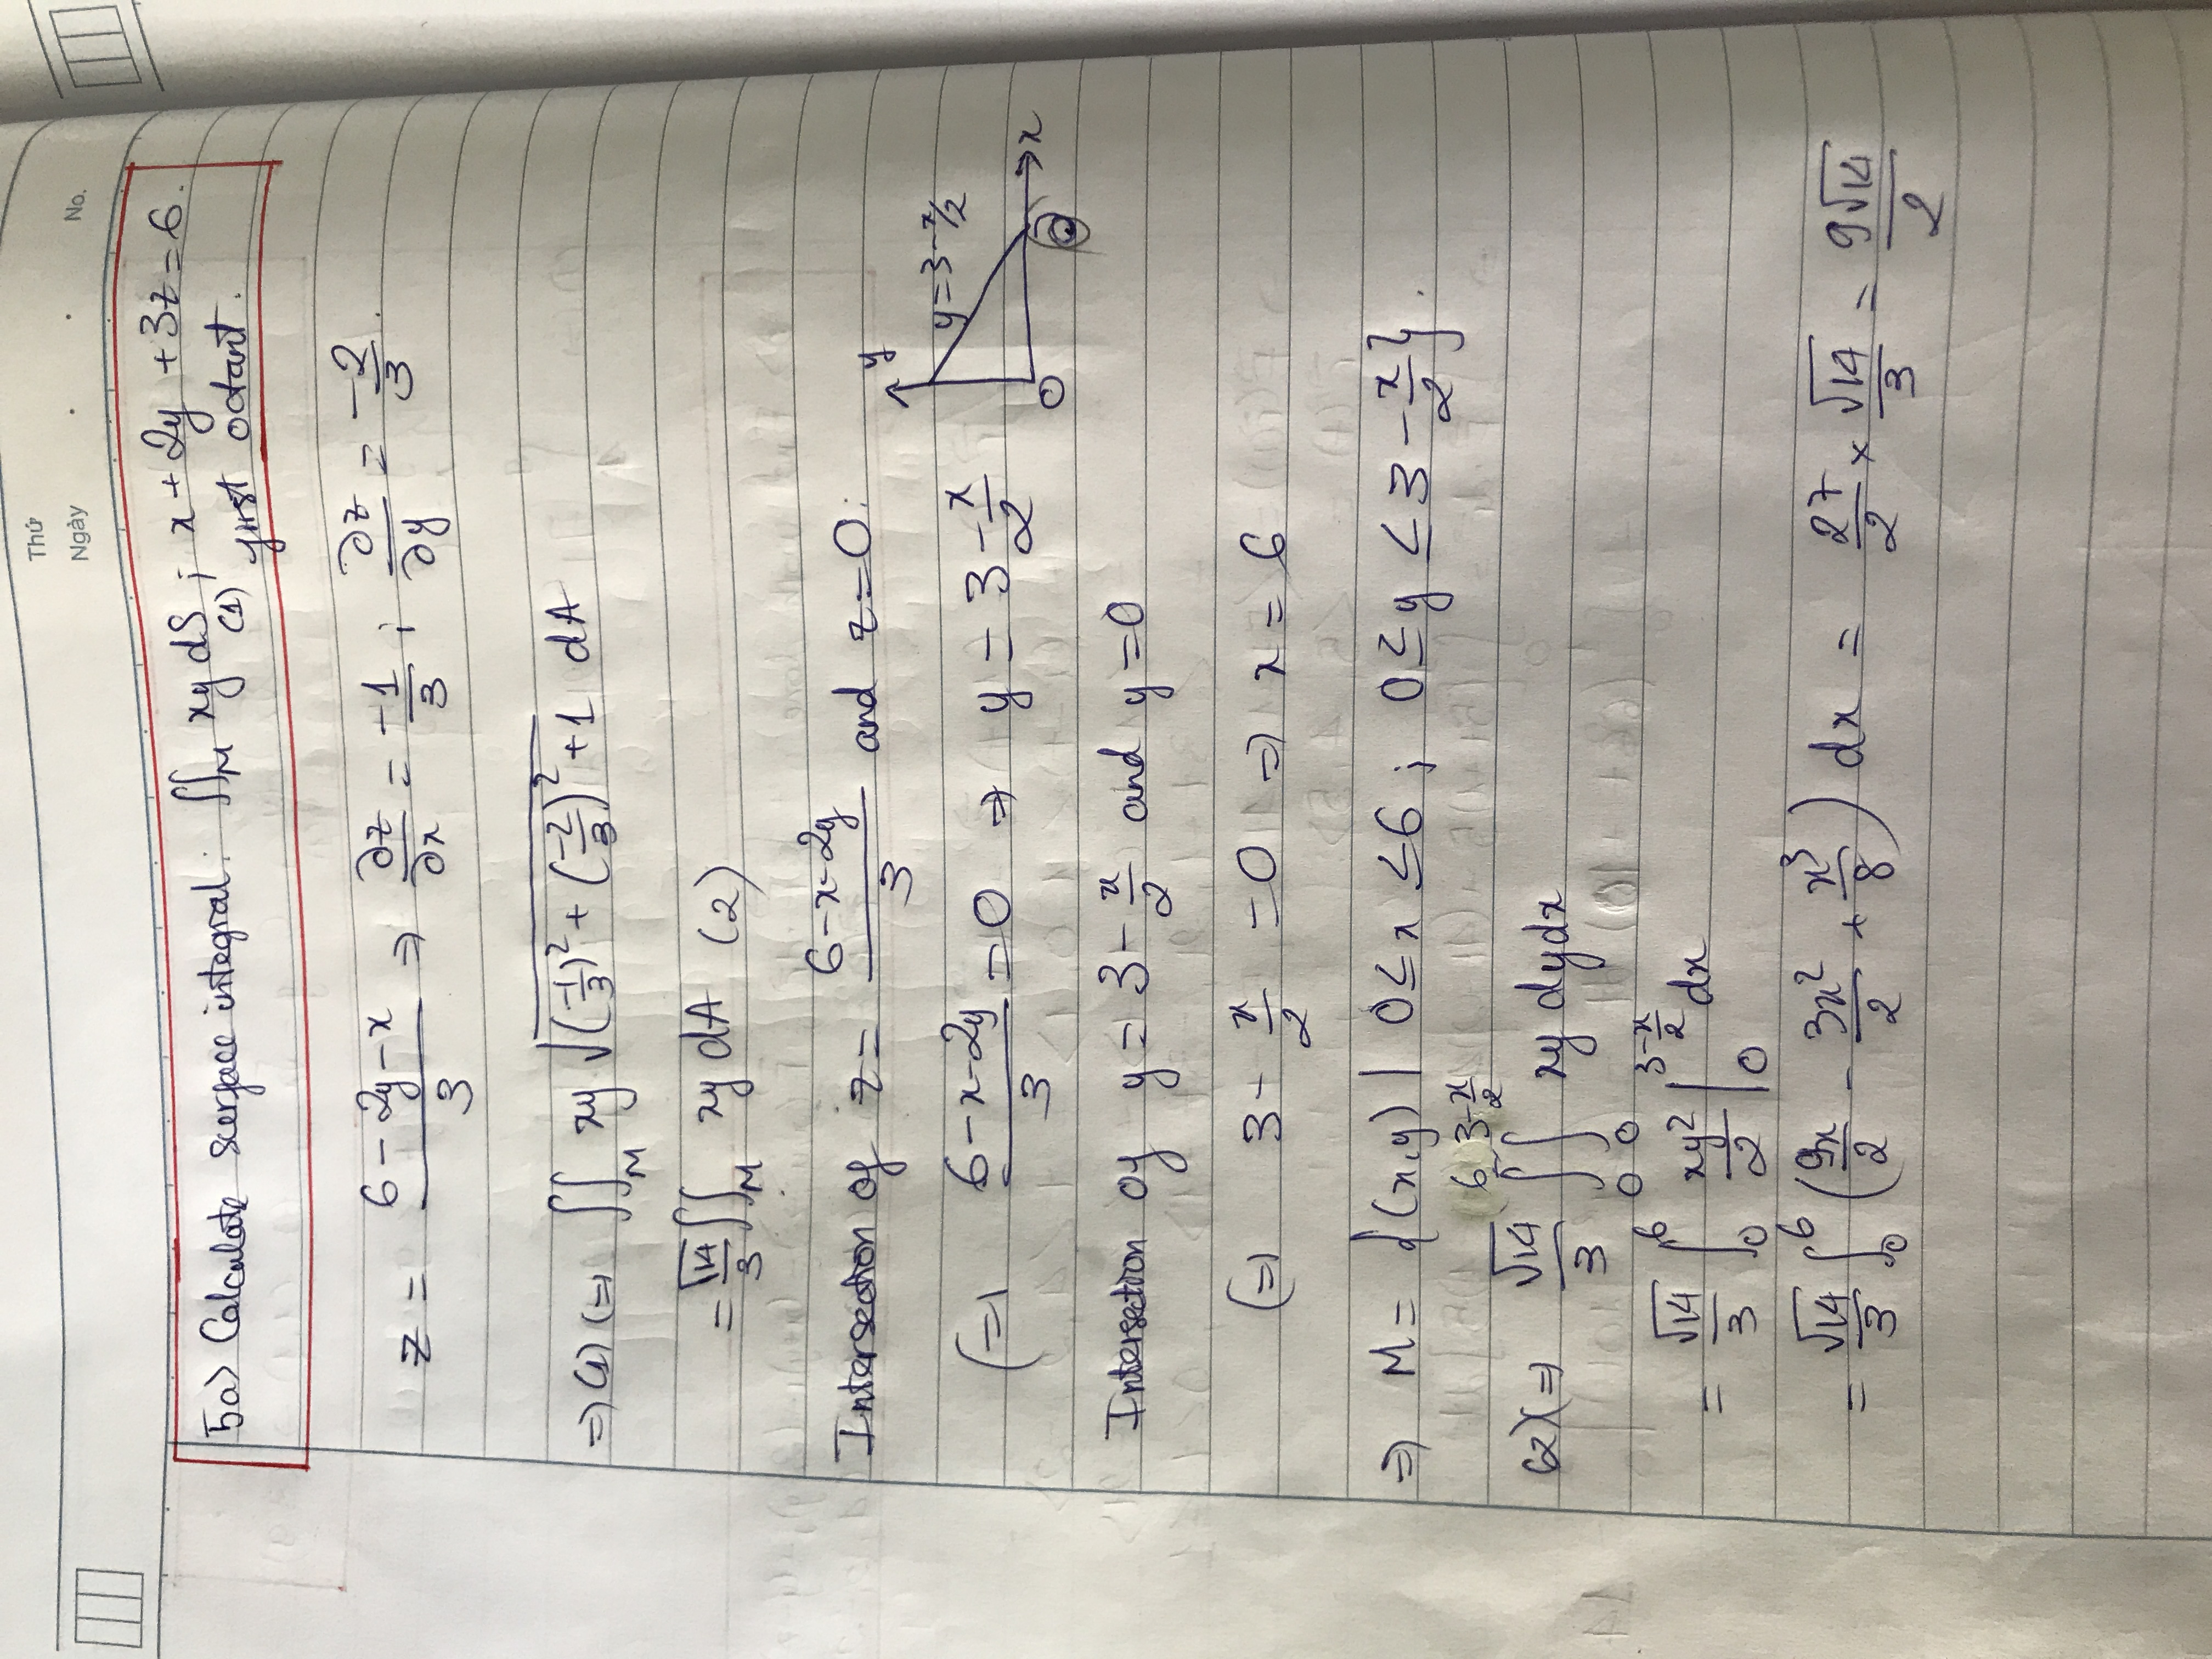 Thứ
Ngày . . No.
5a) Calculate surface integral: ∬_M xy dS (1) ; x + 2y + 3z = 6.
first octant.
z = (6 - 2y - x)/3 ⇒ ∂z/∂x = -1/3 ; ∂z/∂y = -2/3.
⇒ (1) (=) ∬_M xy √((-1/3)² + (-2/3)² + 1) dA
= √14/3 ∬_M xy dA (2)
Intersection of z = (6 - x - 2y)/3 and z = 0:
(=) (6 - x - 2y)/3 = 0 ⇒ y = 3 - x/2
y
y = 3 - x/2
x
O
Intersection of y = 3 - x/2 and y = 0
(=) 3 - x/2 = 0 ⇒ x = 6
⇒ M = {(x,y) | 0 ≤ x ≤ 6 ; 0 ≤ y ≤ 3 - x/2}.
(2) (=) √14/3 ∫_0^6 ∫_0^(3 - x/2) xy dydx
= √14/3 ∫_0^6 xy²/2 |_0^(3 - x/2) dx
= √14/3 ∫_0^6 (9x/2 - 3x²/2 + x³/8) dx = 27/2 × √14/3 = 9√14/2